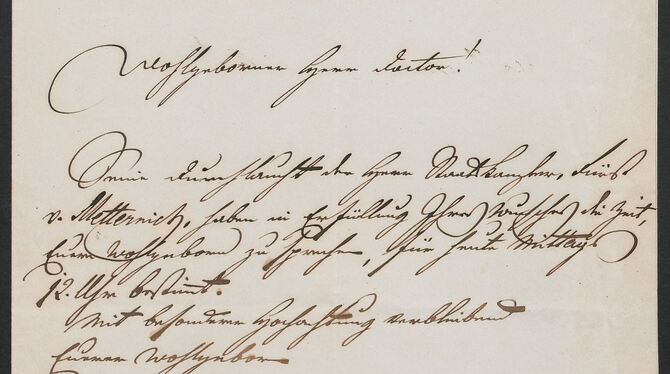 Wohlgeborner Herr Doctor!
Seine Durchlaucht der Herr Staatskanzler, Fürst
v. Metternich, haben in Erfüllung Ihres Wunsches die Zeit,
Euer Wohlgeborn zu sprechen, für heute Mittags
12. Uhr bestimmt.
Mit besonderer Hochachtung verbleibend
Euerer Wohlgeborn